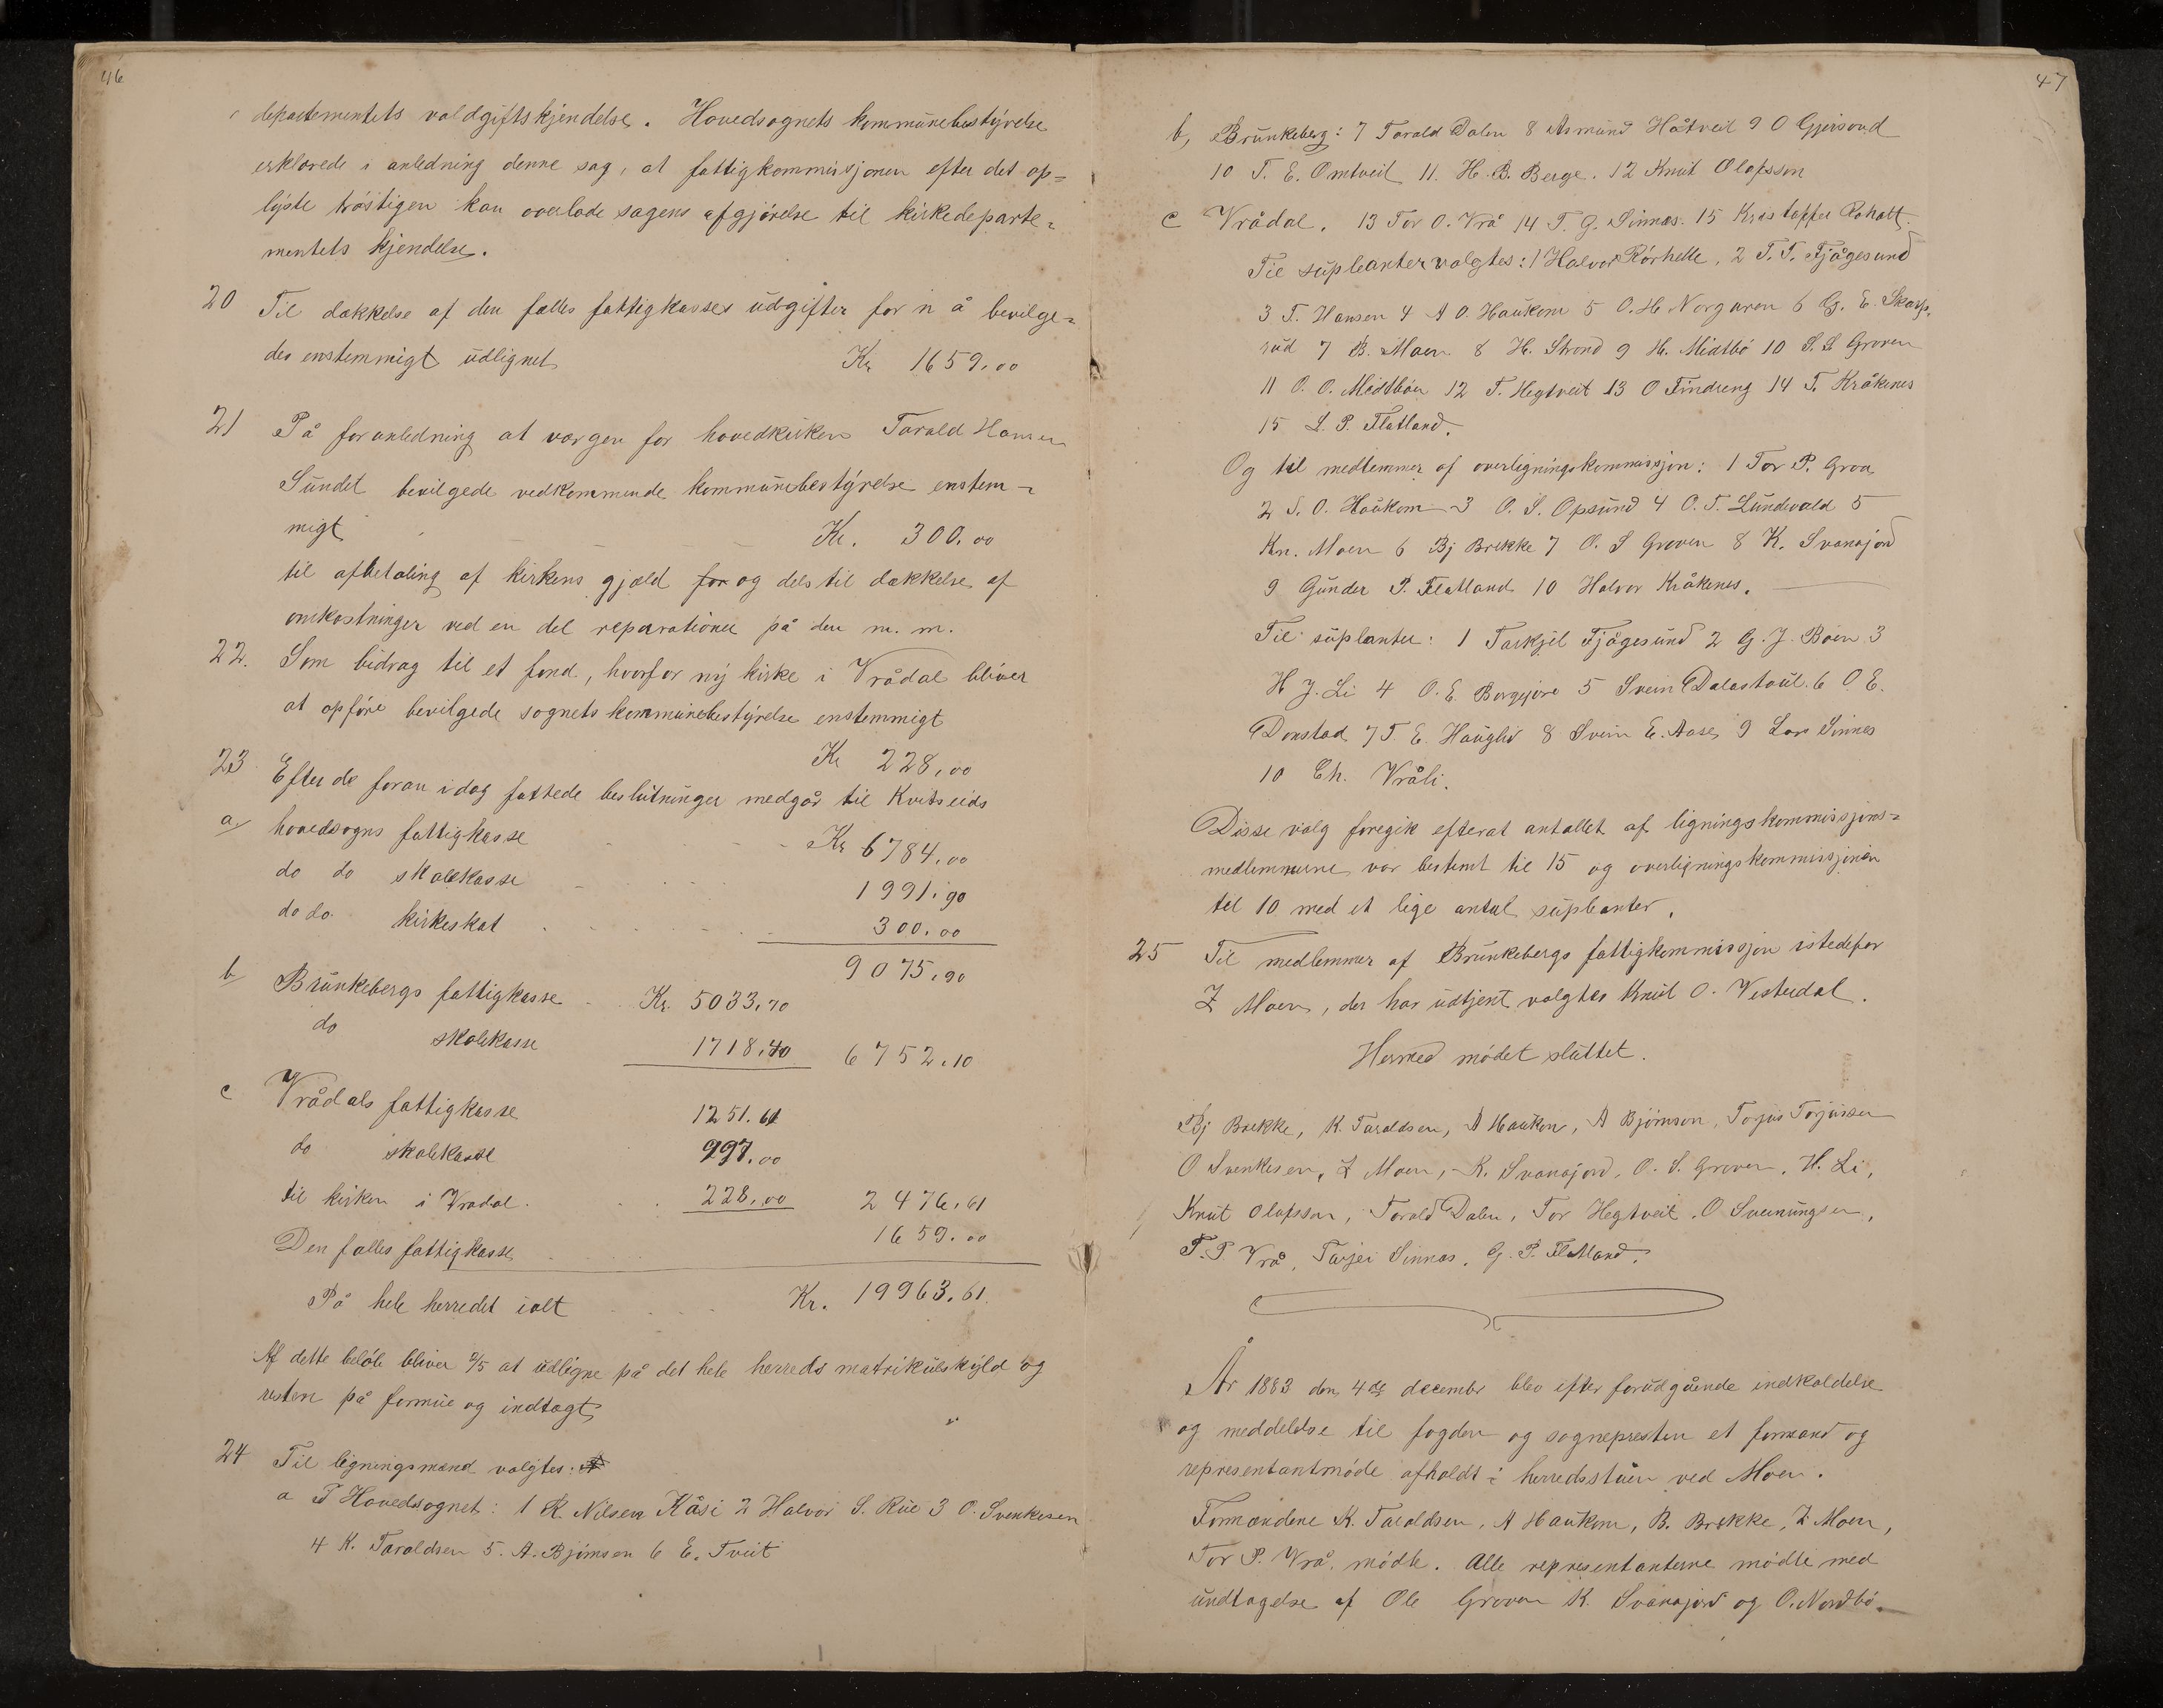 46
departementets voldgiftskjendelse. Hovedsognets kommunebestyrelse
erklærede i anledning denne sag, at fattigkommissjonen efter det op-
lyste trøstigen kan overlade sagens afgjørelse til kirkedeparte-
mentets kjendelse.
20 Til dækkelse af den fælles fattigkasses udgifter for n å bevilge-
des enstemmigt udlignet Kr 1659,00
21 På foranledning at værgen for hovedkirken Tarald Hansen
Sundet bevilgede vedkommende kommunebestyrelse enstem-
migt Kr. 300,00
til afbetaling af kirkens gjæld for og dels til dækkelse af
omkostninger ved en del reparationer på den m. m.
22. Som bidrag til et fond, hvorfor ny kirke i Vrådal bliver
at opføre bevilgede sognets kommunebestyrelse enstemmigt
Kr 228,00
23 Efter de foran idag fattede beslutninger medgår til Kvitseids
a, hovedsogns fattigkasse Kr 6784,00
do do skolekasse 1991,90
do do kirkeskat 300,00
9075,90
b Brunkebergs fattigkasse Kr. 5033,70
do skolekasse 1718,40 6752,10
c Vrådals fattigkasse 1251.61
do skolekasse 997,00
til kirken i Vrådal. 228,00 2476,61
Den fælles fattigkasse 1659.00
På hele herredet ialt Kr. 19963,61.
Af dette beløb bliver 2/5 at udligne på det hele herreds matrikulskyld og
resten på formue og indtægt
24 Til ligningsmænd valgtes:
a I Hovedsognet: 1 K. Nilsen Kåsi 2 Halvor S. Rue 3 O. Svenkesen
4 K. Taraldsen 5. A. Bjørnsen 6 E. Tveit
47
b, Brunkeberg: 7 Tarald Dalen 8 Asmund Håtveit 9 O Gjersund
10 T. E. Omtveit 11. H. B. Berge. 12 Knut Olafsson
c Vrådal. 13 Tor O. Vrå 14 T. G. Sinnæs. 15 Kristoffer Roholt.
Til supleanter valgtes: 1 Halvor Rørhelle, 2 T. T. Fjågesund
3 T. Hansen 4 A O. Haukom 5 O. H Norgaren 6 G. E. Skarp-
rud 7 B. Moen 8 H. Strond 9 H. Midtbø 10 S. S Groven
11 O. O. Midtbøen 12 T. Hegtveit 13 O Findreng 14 T. Kråkenes
15 L. P. Flatland.
Og til medlemmer af overligningskommissjon: 1 Tor P. Groa
2 S. O. Haukom 3 O. S. Opsund 4 O. T. Lundevald 5
Kn. Moen 6 Bj Brekke 7 O. S Groven 8 K. Svanajord
9 Gunder P. Flatland 10 Halvor Kråkenes.
Til suplanter: 1 Tarkjel Fjågesund 2 G. J. Boen 3
H J. Li 4 O. E. Borgejore 5 Svein Dalastøul. 6 O E.
Donstad 7 T. E. Hauglid 8 Svein E. Aase 9 Lars Sinnes
10 Ch. Vråli.
Disse valg foregik efterat antallet af ligningskommissjons-
medlemmerne var bestemt til 15 og overligningskommissjonen
til 10 med et lige antal supleanter.
25 Til medlemmer af Brunkebergs fattigkommissjon istedefor
Z Moen, der har udtjent valgtes Knut O. Vesterdal.
Hermed mødet sluttet.
Bj Brekke, K. Taraldsen, A Haukom, A Bjørnson, Torjus Torjussen
O Svenkesen, Z Moen, K. Svanajord, O. S. Groven, H. Li,
Knut Olafsson, Torald Dalen, Tor Hegtveit, O Sveinungsen,
T. P. Vrå, Tarjei Sinnæs, G. P. Flatland.
År 1883 den 4de decembr blev efter forudgående indkaldelse
og meddelelse til fogden og sognepresten et formand og
representantmøde afholdt i herredsstuen ved Moen.
Formændene K. Taraldsen, A Haukom, B. Brekke, Z Moen,
Tor P. Vrå, mødte. Alle representanterne mødte med
undtagelse af Ole Groven K. Svanajord og O. Nordbø.